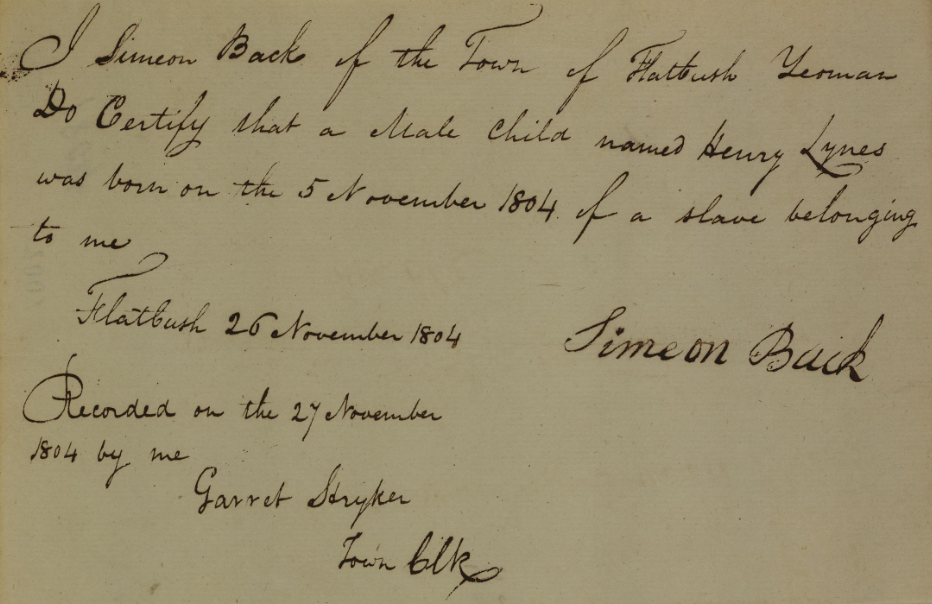 I Simeon Back of the Town of Flatbush Yeoman
Do Certify that a Male Child named Henry Lynes
was born on the 5 November 1804 of a slave belonging
to me
Flatbush 26 November 1804
Simeon Back
Recorded on the 27 November
1804 by me
Garret Stryker
Town Clk